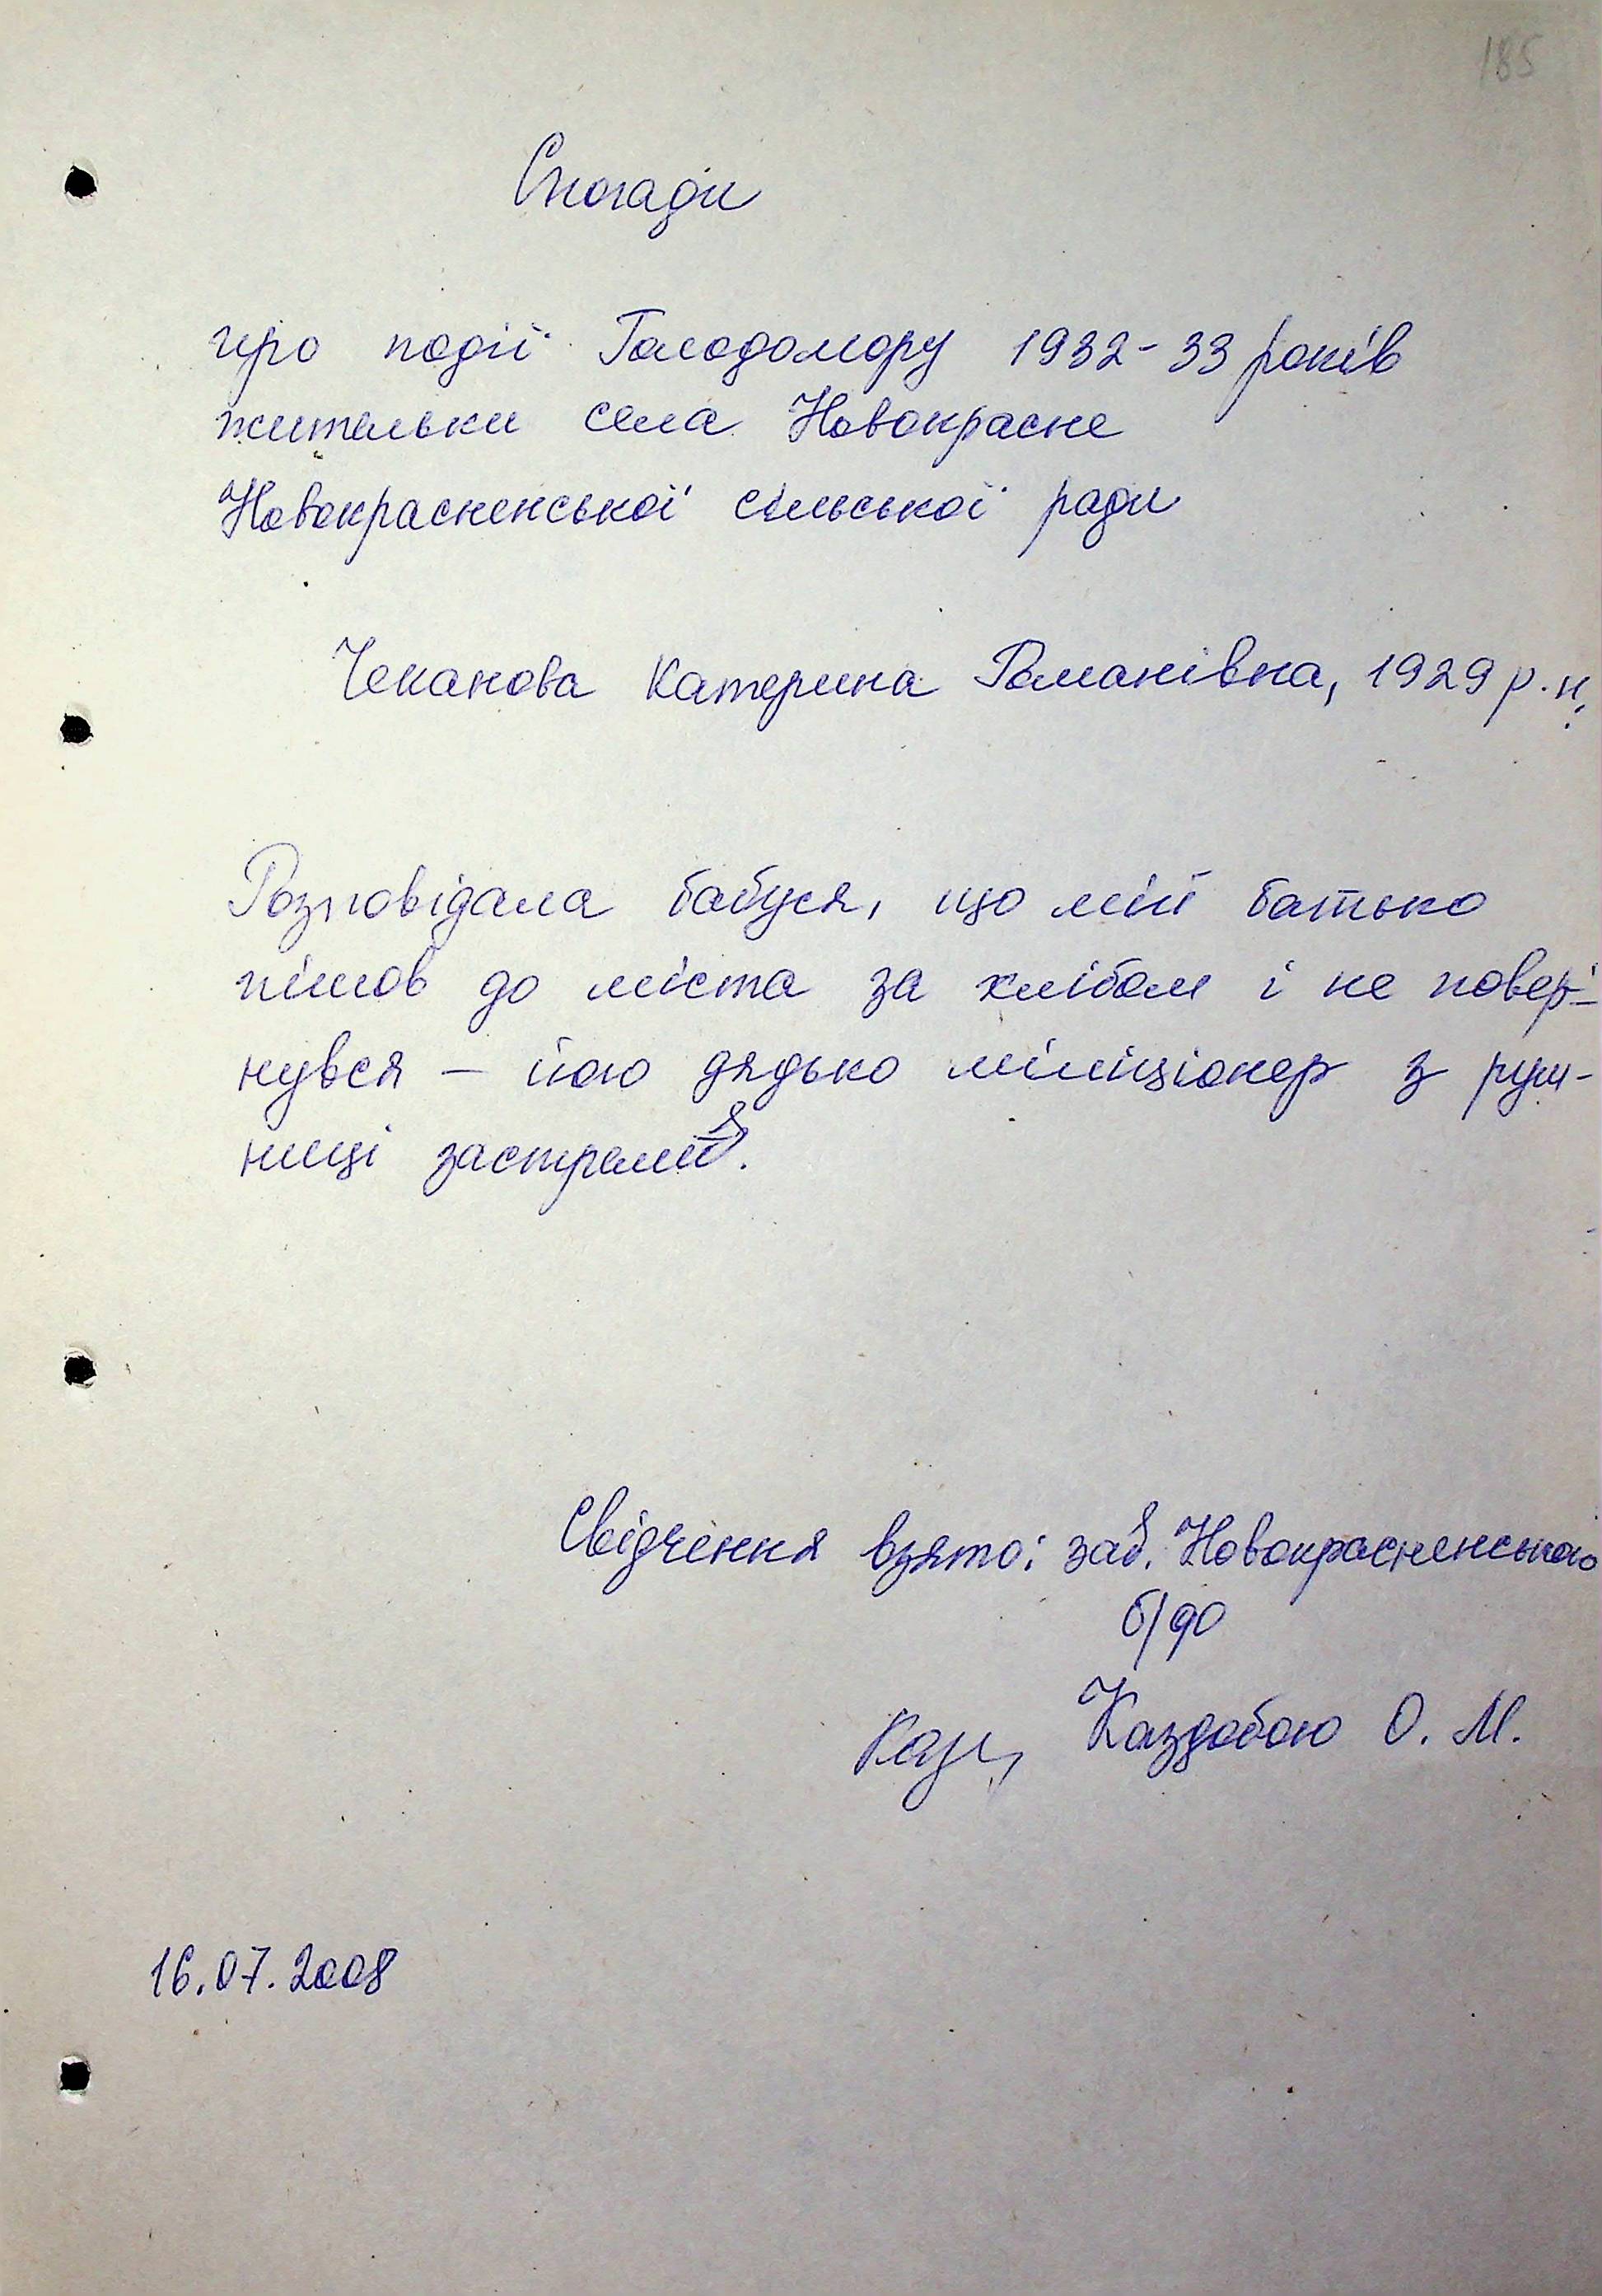 185
Спогади
про події Голодомору 1932-33 років
жительки села Новокрасне
Новокрасненської сільської ради
Чеканова Катерина Романівна, 1929 р.н.
Розповідала бабуся, що мій батько
пішов до міста за хлібом і не повер-
нувся – його дядько міліціонер з руш-
ниці застрелив.
Свідчення взято: зав. Новокрасненською
б/ф
Каздобою О. М.
16.07.2008